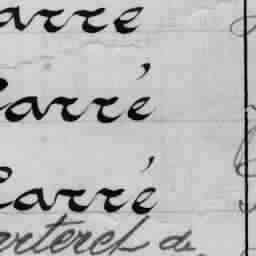 arré
Carré
Carré
arteret de